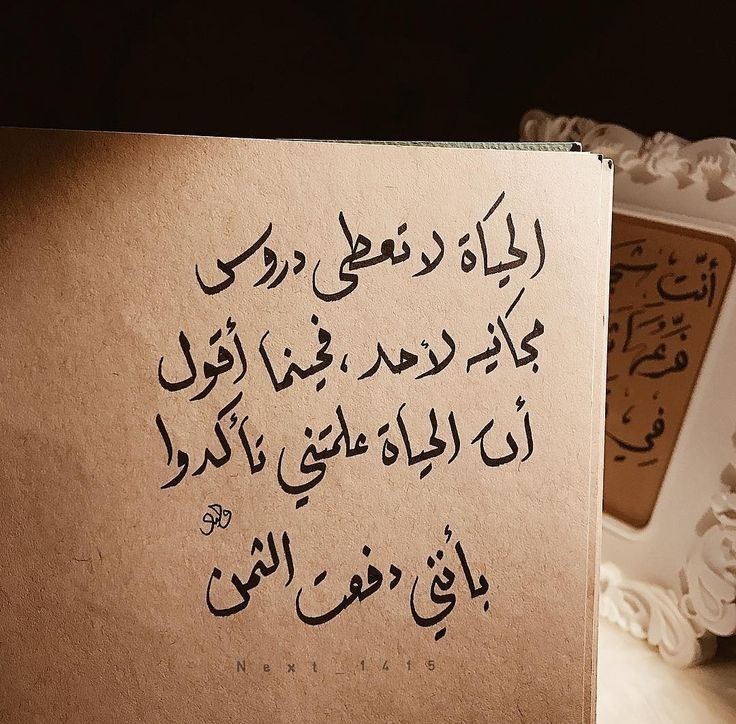 الحياة لا تعطى دروس
مجانيه لأحد ، فحينما أقول
أن الحياة علمتني تأكدوا
بأنني دفعت الثمن
Next_1415
أنت
في